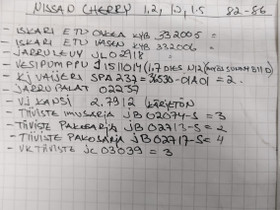 NISSAN CHERRY 1,2, 1,3, 1.5 82-86
- ISKARI ETU OIKEA KYB 332005 =
- ISKARI ETU VASEN KYB 332006 =
- JARRULEVY JL02913 =
- VESIPUMPPU J1511014 (1,7 DIES N12
- KI VAIJERI SPA 237 = 36536-01A01 = 2.
- JARRUPALAT 02237
- VJ KANSI 2.7912 KÄRJETÖN
- TIIVISTE IMUSARJA JB 02074-S = 3
- TIIVISTE PAKOSARJA JB 02713-S = 2
- TIIVISTE PAKOSARJA JB 02717-S = 4
- VK TIIVISTE JC 03039 = 3